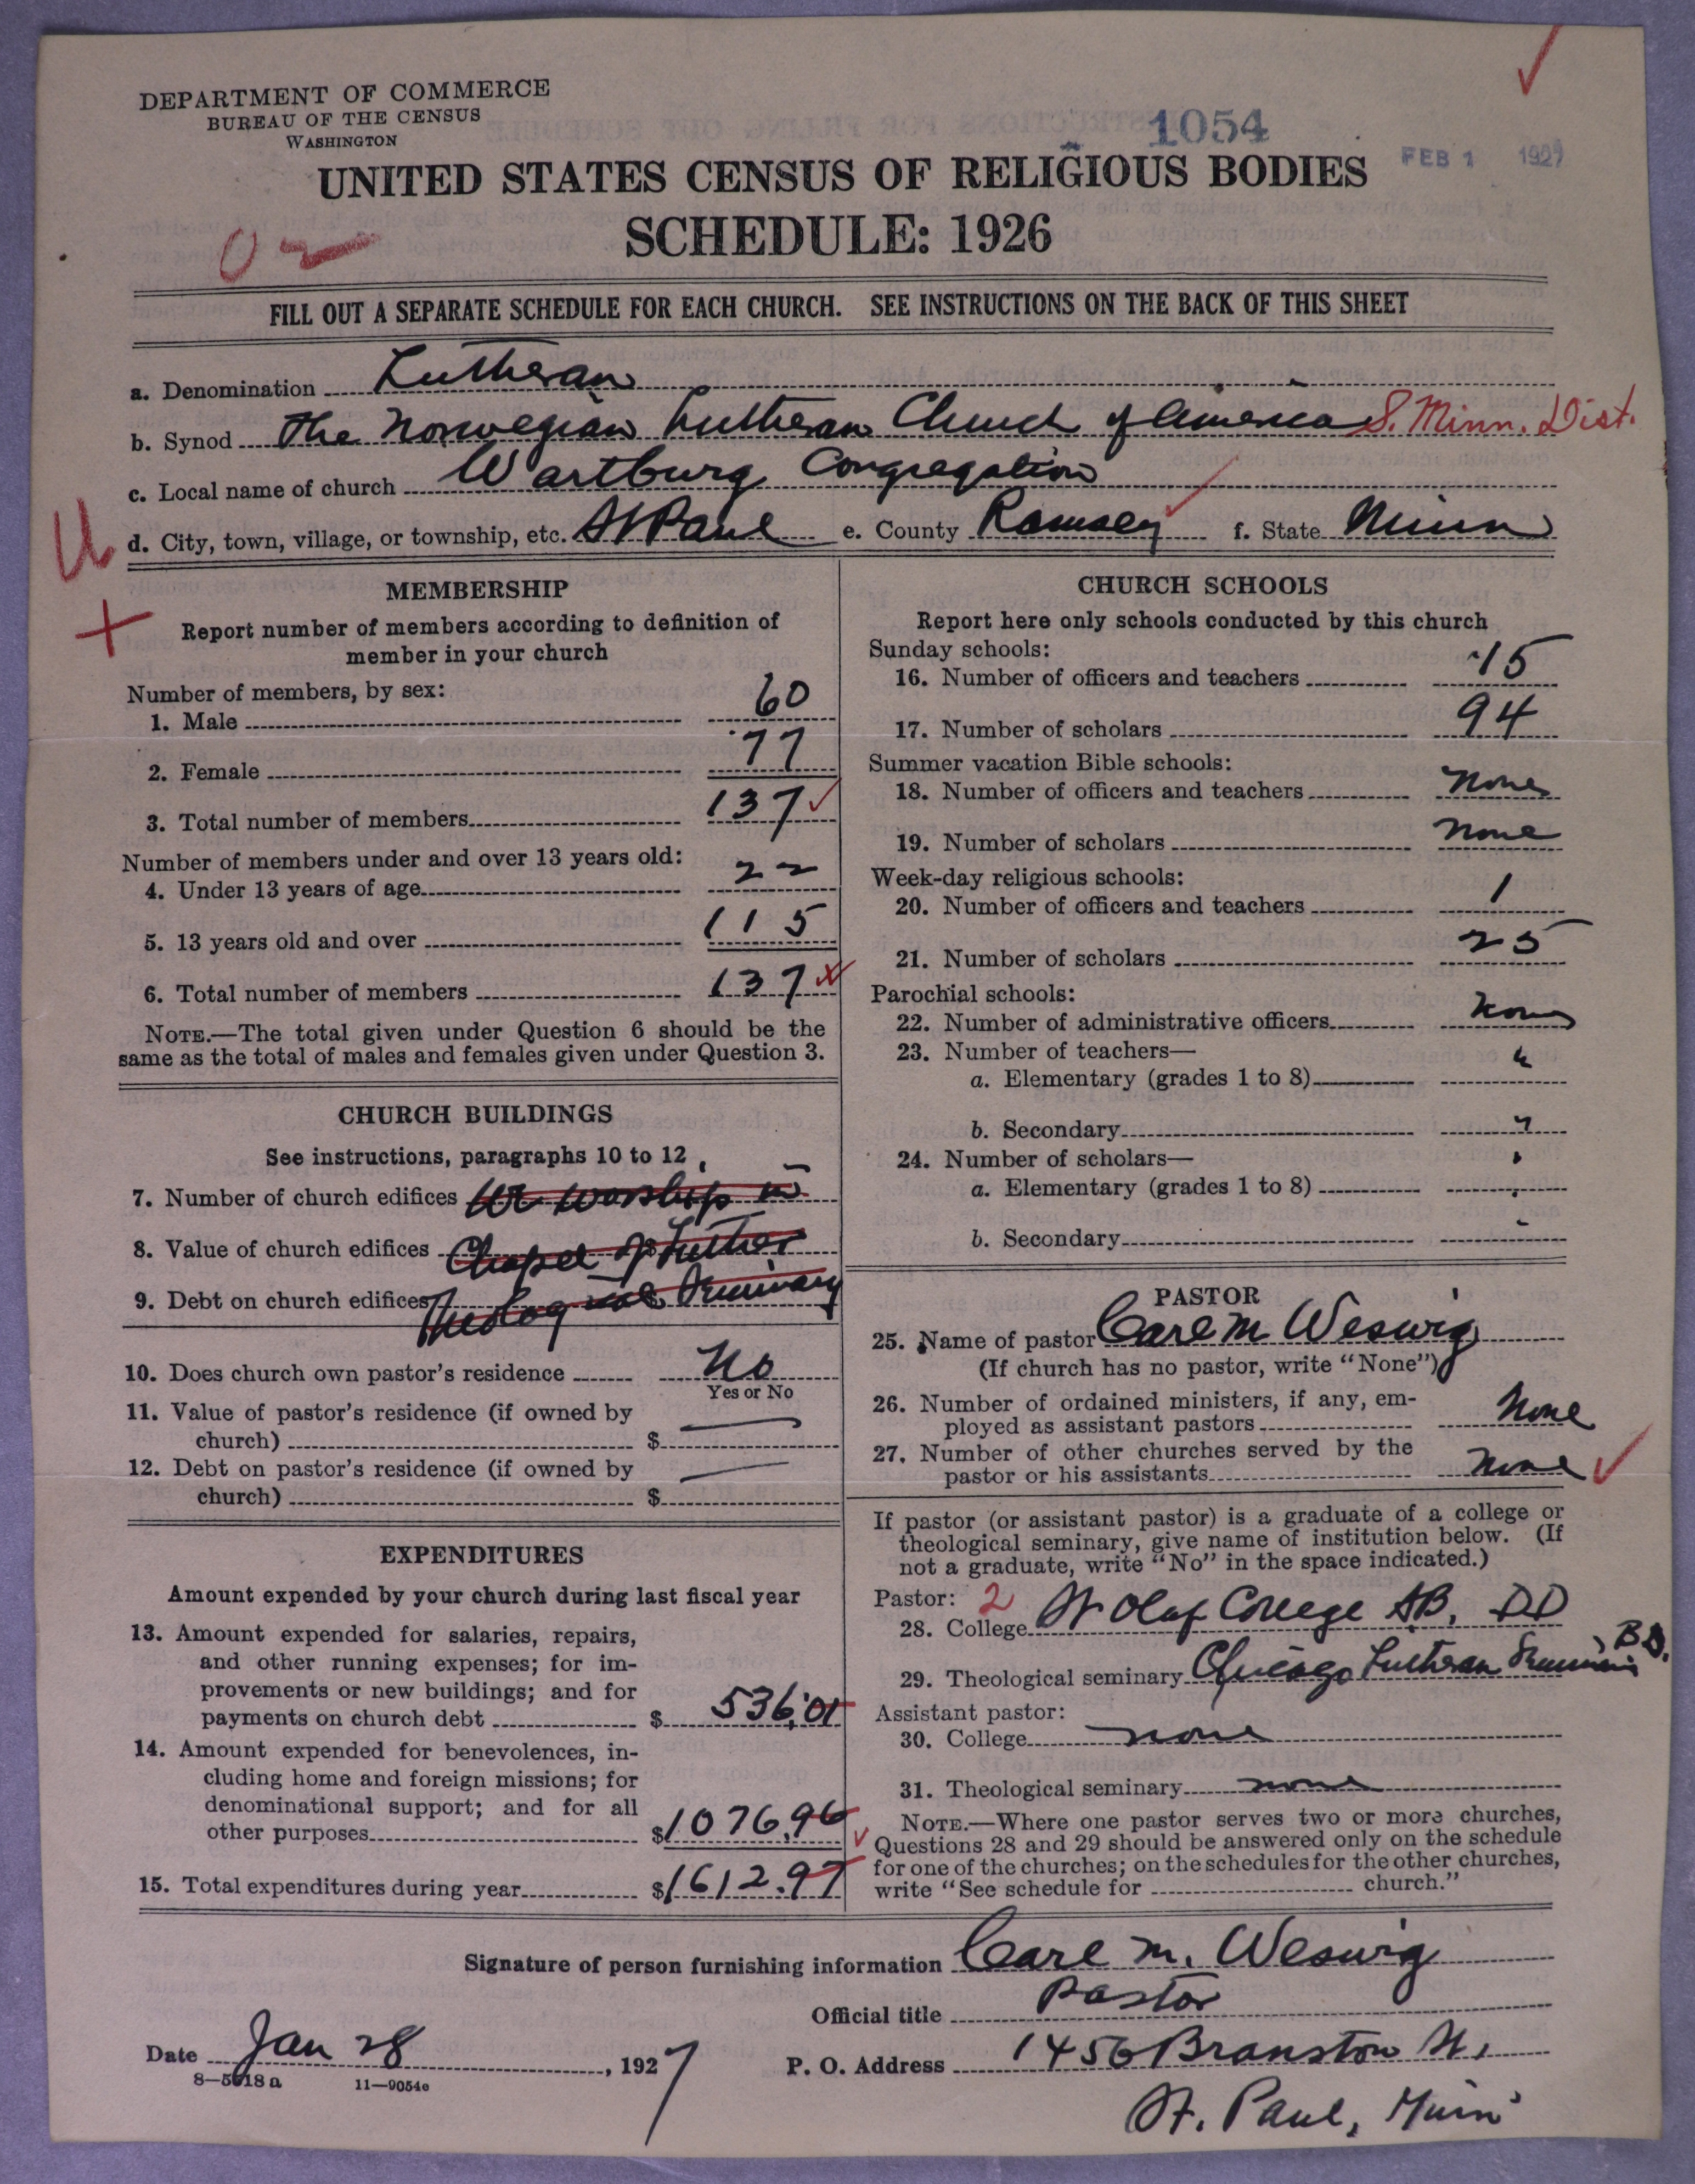 DEPARTMENT OF COMMERCE
BUREAU OF THE CENSUS
WASHINGTON
1054
FEB 1 1927
UNITED STATES CENSUS OF RELIGIOUS BODIES
SCHEDULE: 1926
FILL OUT A SEPARATE SCHEDULE FOR EACH CHURCH. SEE INSTRUCTIONS ON THE BACK OF THIS SHEET
a. Denomination Lutheran
b. Synod The Norwegian Lutheran Church of America S. Minn. Dist.
c. Local name of church Wartburg Congregation
d. City, town, village, or township, etc. St Paul e. County Ramsey f. State Minn
MEMBERSHIP
Report number of members according to definition of
member in your church
Number of members, by sex:
1. Male 60
2. Female 77
3. Total number of members 137
Number of members under and over 13 years old:
4. Under 13 years of age 22
5. 13 years old and over 115
6. Total number of members 137
NOTE.—The total given under Question 6 should be the
same as the total of males and females given under Question 3.
CHURCH BUILDINGS
See instructions, paragraphs 10 to 12
7. Number of church edifices We worship in
8. Value of church edifices Chapel of Luther
9. Debt on church edifices Theological Seminary
10. Does church own pastor's residence No
Yes or No
11. Value of pastor's residence (if owned by
church) $
12. Debt on pastor's residence (if owned by
church) $
EXPENDITURES
Amount expended by your church during last fiscal year
13. Amount expended for salaries, repairs,
and other running expenses; for im-
provements or new buildings; and for
payments on church debt $ 536.01
14. Amount expended for benevolences, in-
cluding home and foreign missions; for
denominational support; and for all
other purposes $ 1076.96
15. Total expenditures during year $ 1612.97
CHURCH SCHOOLS
Report here only schools conducted by this church
Sunday schools:
16. Number of officers and teachers 15
17. Number of scholars 94
Summer vacation Bible schools:
18. Number of officers and teachers None
19. Number of scholars None
Week-day religious schools:
20. Number of officers and teachers 1
21. Number of scholars 25
Parochial schools:
22. Number of administrative officers None
23. Number of teachers—
a. Elementary (grades 1 to 8)
b. Secondary
24. Number of scholars—
a. Elementary (grades 1 to 8)
b. Secondary
PASTOR
25. Name of pastor Carl M Weswig
(If church has no pastor, write "None")
26. Number of ordained ministers, if any, em-
ployed as assistant pastors None
27. Number of other churches served by the
pastor or his assistants None
If pastor (or assistant pastor) is a graduate of a college or
theological seminary, give name of institution below. (If
not a graduate, write "No" in the space indicated.)
Pastor: 2
28. College St Olaf College AB, DD
29. Theological seminary Chicago Lutheran Seminary B.D.
Assistant pastor:
30. College none
31. Theological seminary none
NOTE.—Where one pastor serves two or more churches,
Questions 28 and 29 should be answered only on the schedule
for one of the churches; on the schedules for the other churches,
write "See schedule for church."
Signature of person furnishing information Carl M. Weswig
Official title Pastor
Date Jan 28, 1927 P. O. Address 1456 Branston St,
8—5618a 11—9054e
St. Paul, Minn